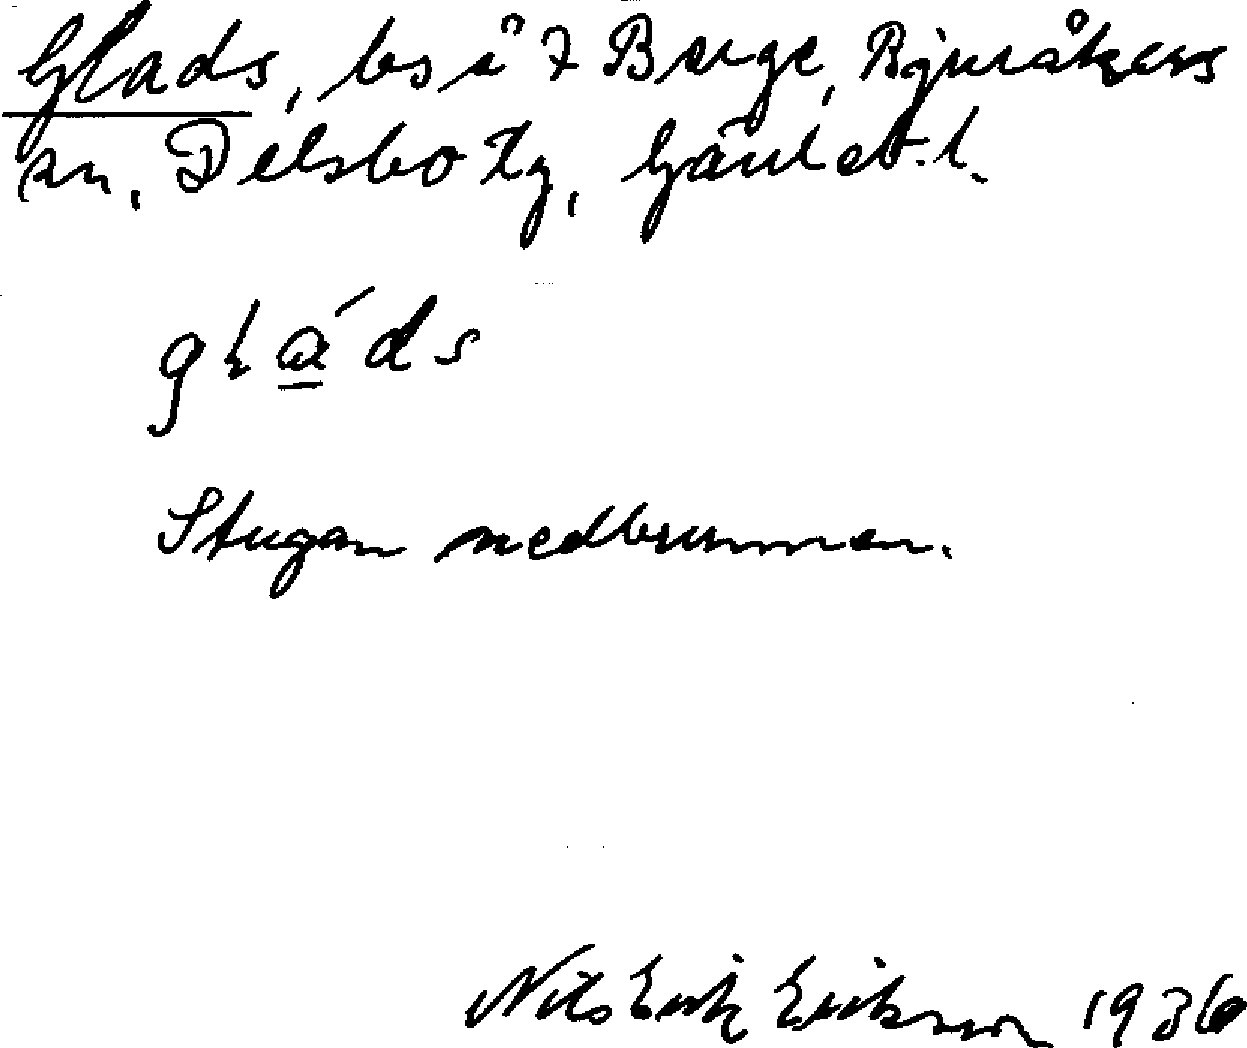 Glads, bs å 7 Berge, Bjuråkers
sn, Delsbo tg, Gävleb. l.
glads
Stugan nedbrunnen.
Nils Erik Erikson 1936